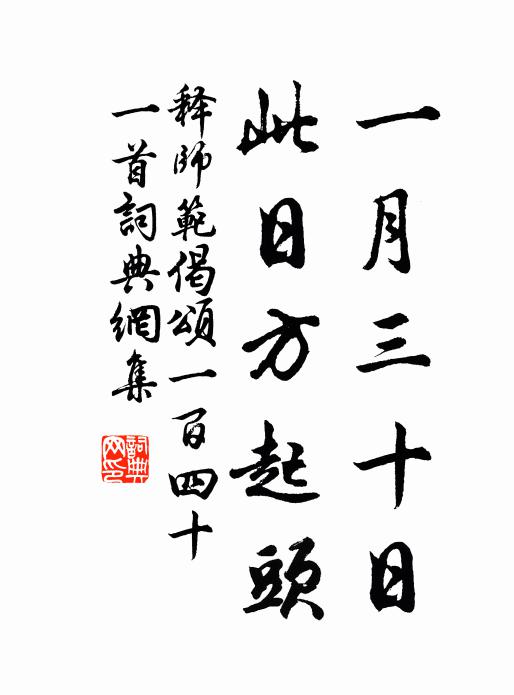 一月三十日
此日方起頭
释師範偈頌一百四十
一首詞典網集
詞典
网印